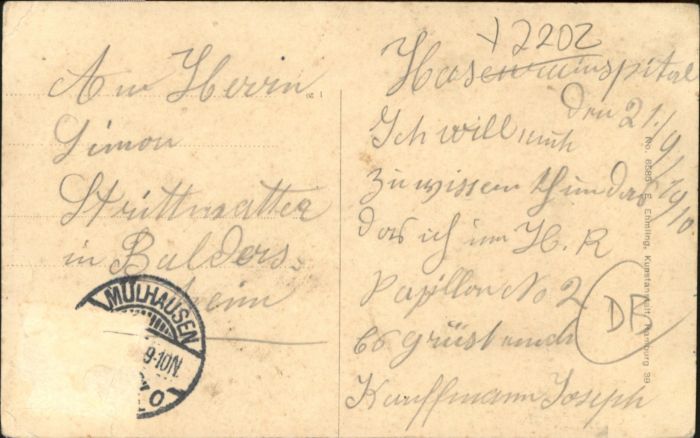 An Herrn
Simon
Strittmatter
in Balders-
heim
MÜLHAUSEN
9-10N.
y 2202
Hasenrainspital
den 21./9./1910.
Ich will euch
zu wissen thun das
das ich im H. R
Papillon No 2
es grüst euch
Kauffmann Joseph
DB
No. 6585 E. Ehmling, Kunstanstalt, Hamburg 39